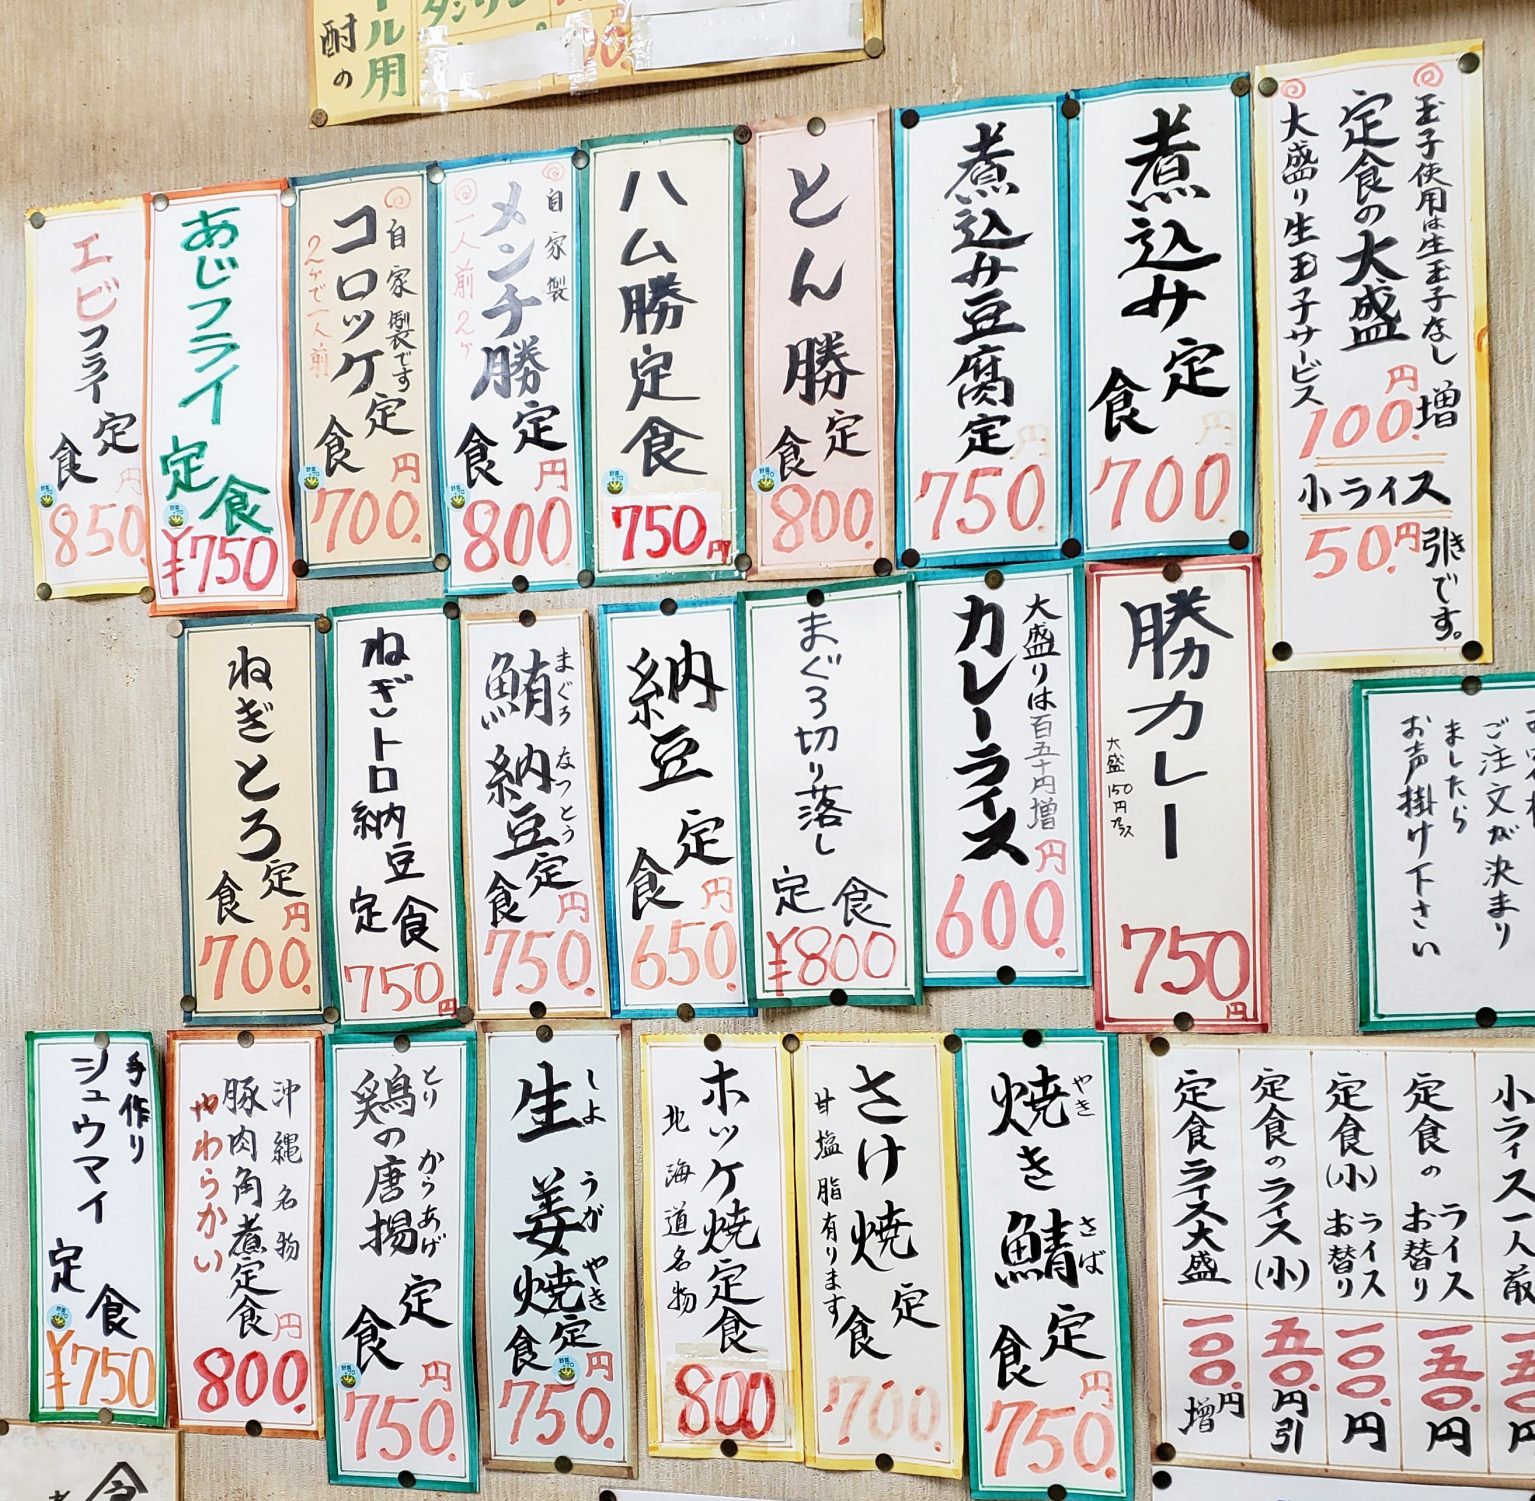 ール用
酎の
玉子使用は生玉子なし
定食の大盛
大盛り生玉子サービス
100円増
小ライス
50円引きです。
煮込み定食
700円
煮込み豆腐定
750円
とん勝定食
800.
ハム勝定食
750円
自家製
メンチ勝定食
一人前2ヶ
800円
自家製です
コロッケ定食
2ヶで一人前
700.円
あじフライ定食
¥750
エビフライ定食
850.円
勝カレー
大盛150円プラス
750円
大盛りは百五十円増
カレーライス
600.円
まぐろ切り落し
定食
¥800
納豆定食
650.円
まぐろ なっとう
鮪納豆定食
750.円
ねぎトロ納豆定食
750円
ねぎとろ定食
700.円
ご注文が決まり
ましたら
お声掛け下さい
やき さば
焼き鯖定食
750.円
さけ焼定食
甘塩脂有ります
700.
ホッケ焼定食
北海道名物
800
しょうがやき
生姜焼定食
750.円
とり からあげ
鶏の唐揚定食
750.円
沖縄名物
豚肉角煮定食
やわらかい
800.円
手作り
シュウマイ
定食
¥750
小ライス一人前
定食のライスお替り
一五〇.円
定食(小)ライスお替り
一〇〇.円
定食のライス(小)
五〇.円引
定食ライス大盛
一〇〇.円増